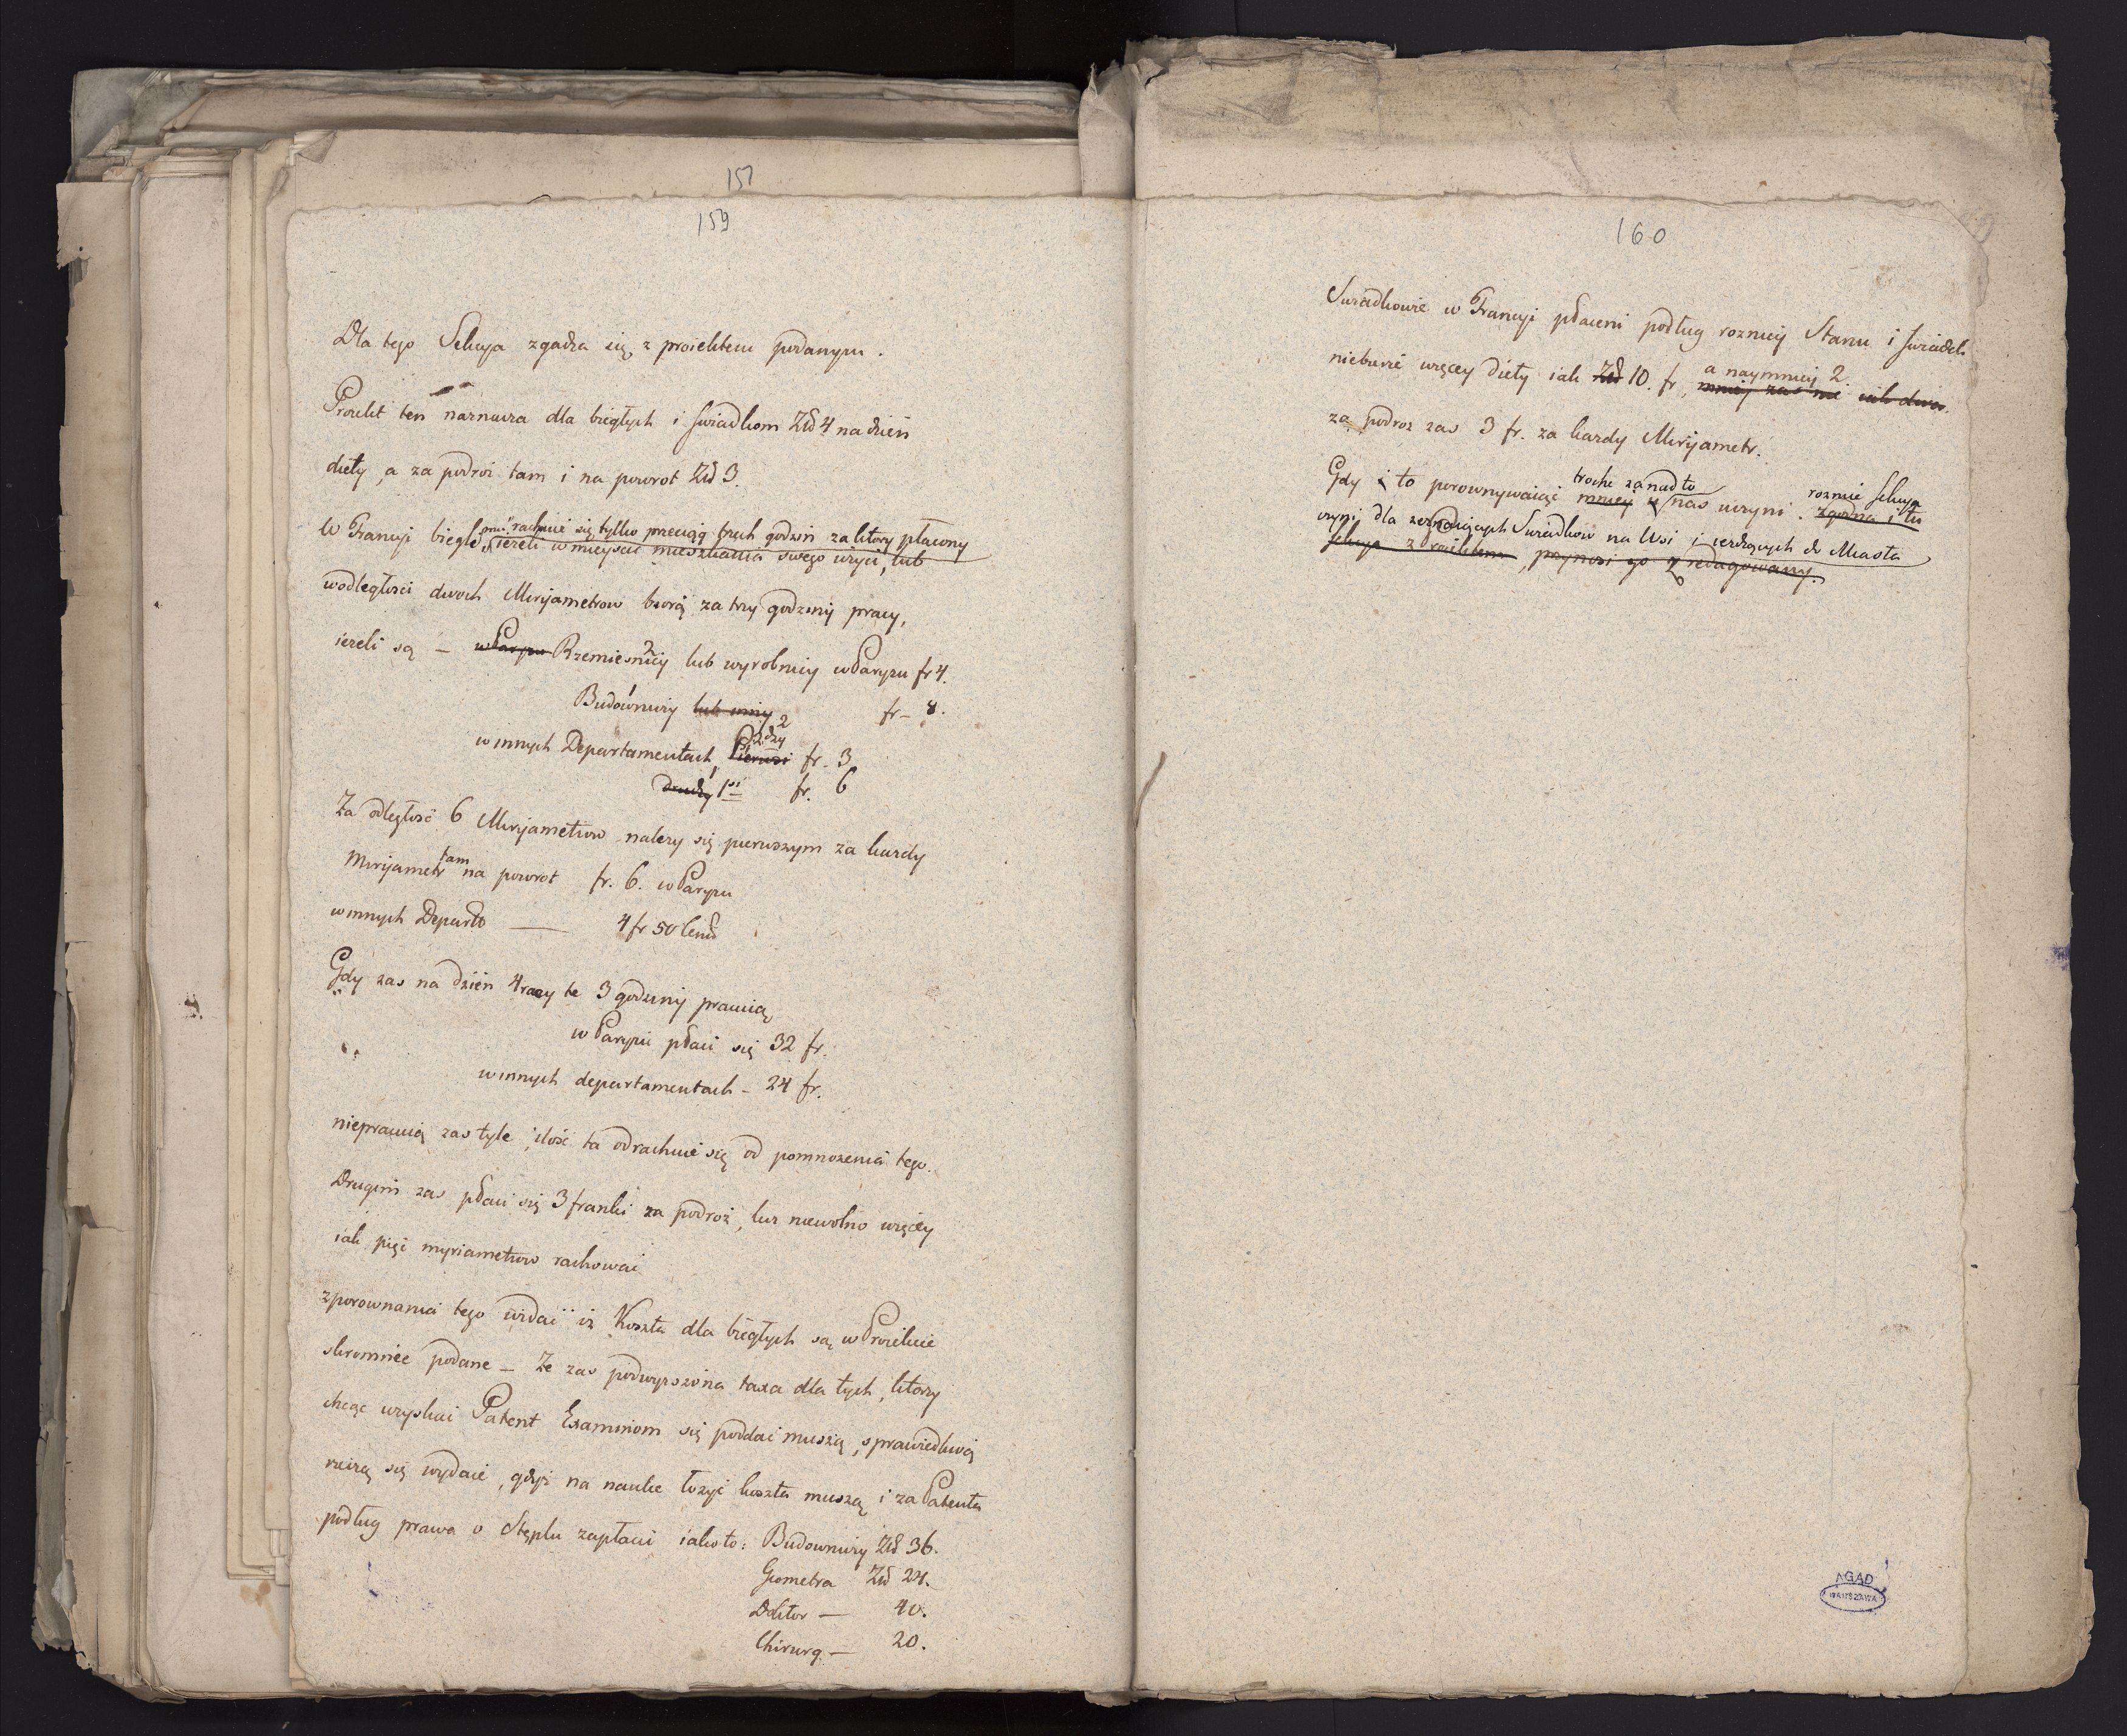 157
159
Dla tego Sekcya zgadza się z proiektem podanym.
Proiekt ten naznacza dla biegłych i swiadkom Złł 4 na dzień
diety, a za podróż tam i na powrot Złł 3.
rachuie się tylko przeciąg trzech godzin za ktory płacony
W Francyi biegłe, ieżeli w mieyscu mieszkania swego użyci, lub
w odległosci dwoch Miryjametrow biorą za trzy godziny pracy,
ieżeli są — w Paryżu Rzemiesnicy lub wyrobnicy w Paryżu fr 4.
Budowniczy lub inny fr — 8.
2
w innych Departamentach, Pierwsi 2dzy fr. 3
drudzy 1si fr. 6
Za odległość 6 Miryjametrow należy się pierwszym za każdy
Miryjametr tam na powrot fr. 6. w Paryżu
w innych Depart — 4 fr 50 Cent
Gdy zas na dzień 4 razy te 3 godziny pracuią
w Paryżu płaci się 32 fr.
w innych departamentach — 24 fr.
niepracuią zas tyle, ilość ta odrachuie się od pomnożenia tego.
Drugim zas płaci się 3 franki za podroż, lecz niewolno więcey
iak pięć myriametrow rachować
z porownania tego widać iż Koszta dla biegłych są w Proiekcie
skromniee podane — Ze zas podwyższona taxa dla tych, ktorzy
chcąc uzyskać Patent Examinom się poddać muszą, sprawiedliwą
rzeczą się wydaie, gdyż na nauke łożyć koszta muszą i za Patenta
podług prawa o Stęplu zapłacić iako to: Budowniczy Złł 36.
Geometra Złł 24.
Doktor — 40.
Chirurg — 20.
160
Swiadkowie w Francyi płaceni podług roznicy Stanu i swiadek
niebierze więcey diety iak Złł 10. fr, a naymniey 2. mniey zas nie iak dwa.
za podroz zas 3 fr. za kazdy Miryjametr.
Gdy i to porownywaiąc mniey troche zanadto u nas uczyni. zgodna i tu roznice Sekcya
czyni dla zeznaiących Swiadkow na Wsi i iezdzących do Miasta
Sekcya z Proiektem, przynosi go zredagowany.
AGAD
WARSZAWA